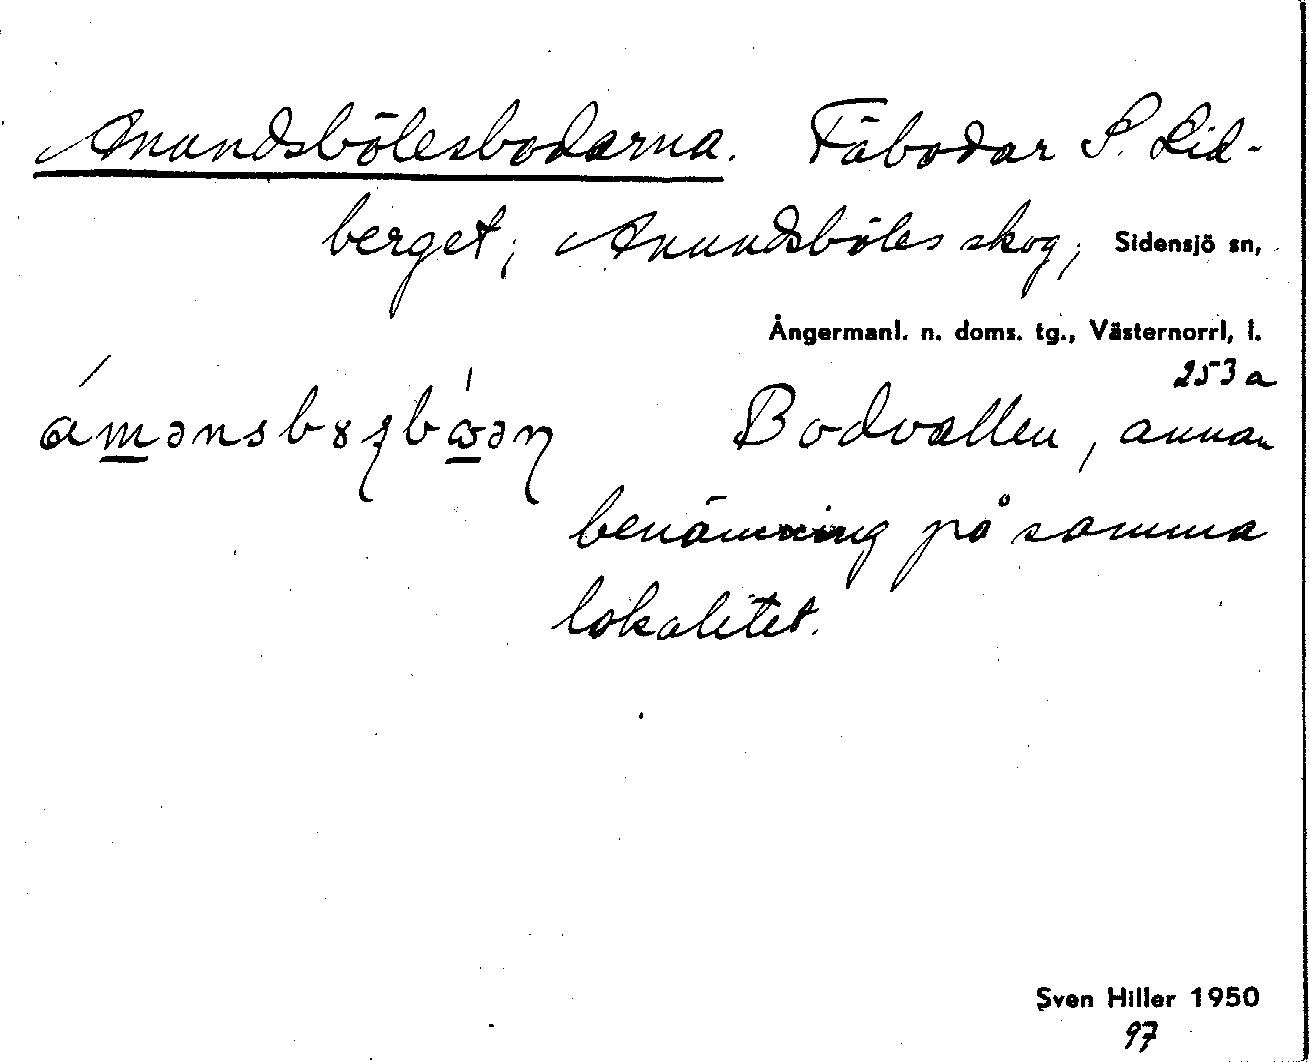 Anundsbölesbodarna. Fäbodar S. Lid-
berget; Anundsböles skog; Sidensjö sn,
Ångermanl. n. doms. tg., Västernorrl, l.
253 a
Bodvallen, annan
benämning på samma
lokalitet.
Sven Hiller 1950
97